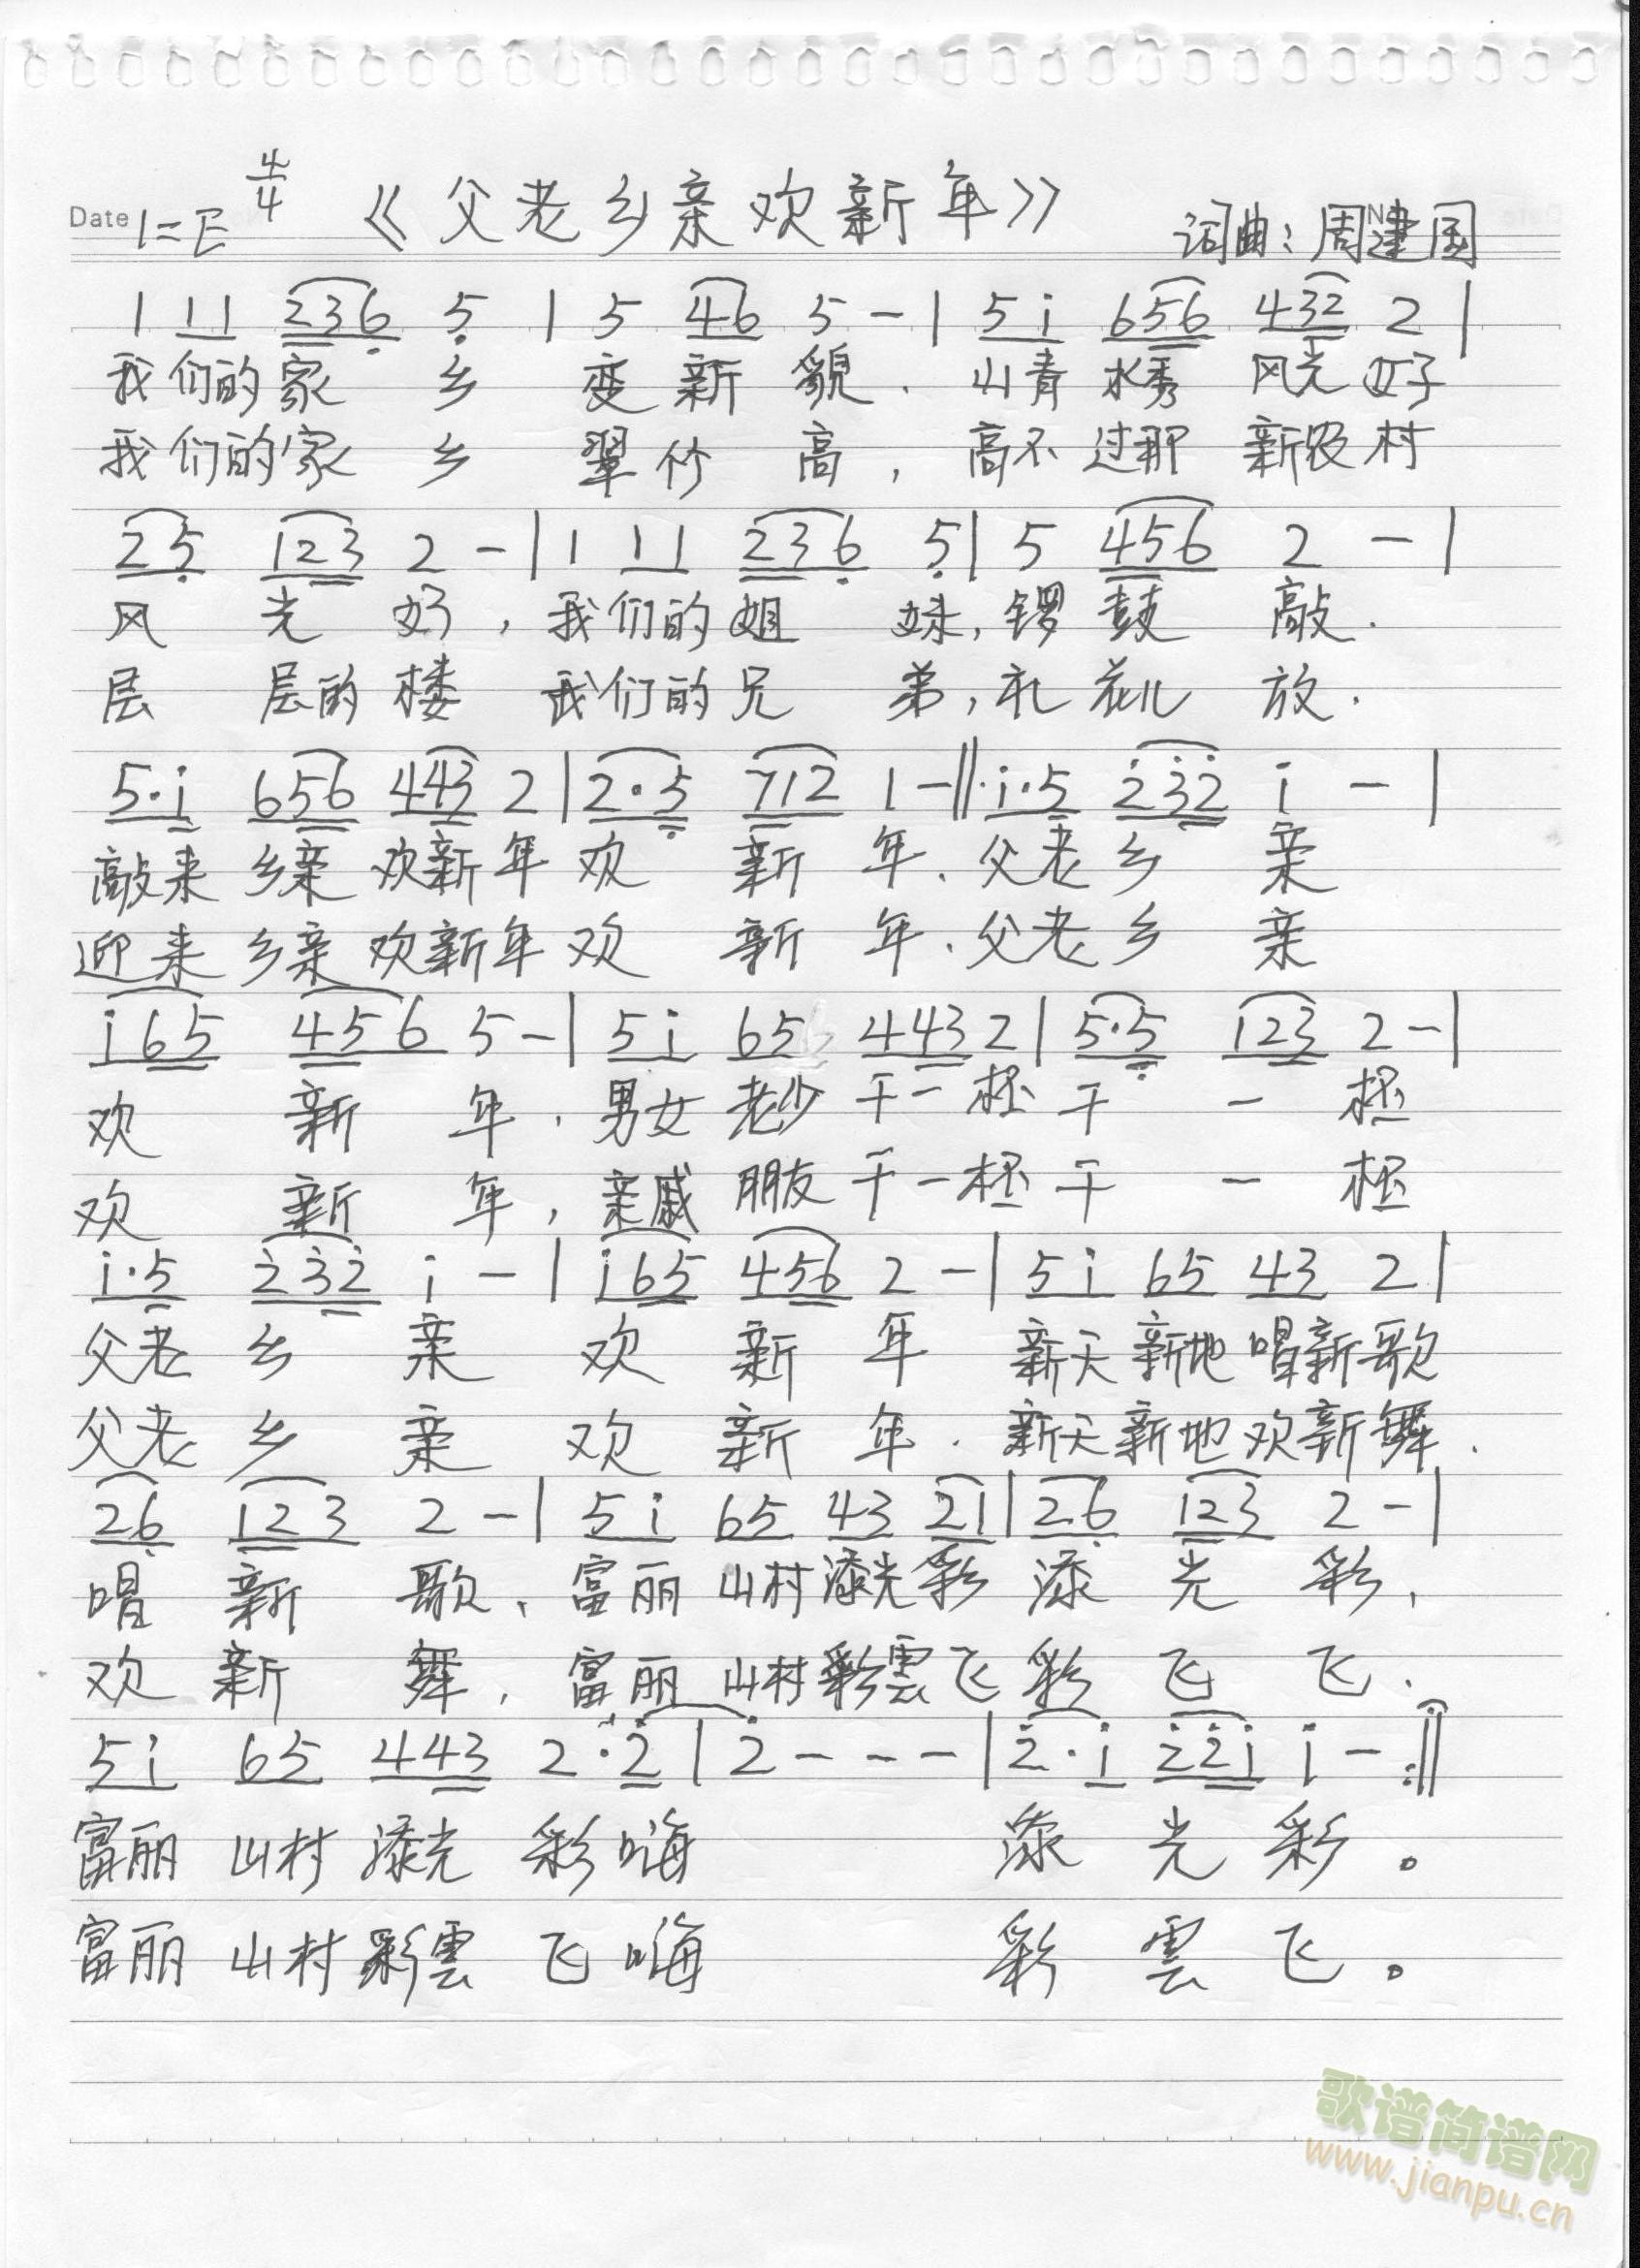 Date 1=E 4/4 《父老乡亲欢新年》 词曲:周建国
1 11 236 5 | 5 46 5 - | 5i 656 432 2 |
我们的家 乡 变新貌. 山青水秀 风光好
我们的家 乡 翠竹高, 高不过那 新农村
25 123 2 - | 1 11 236 5 | 5 456 2 - |
风 光 好, 我们的姐 妹, 锣鼓 敲.
层 层的楼 我们的兄 弟, 礼花儿 放.
5·i 656 443 2 | 2·5 712 1 - ‖: i·5 232 i - |
敲来 乡亲 欢新年 欢 新 年. 父老乡 亲
迎来 乡亲 欢新年 欢 新 年. 父老乡 亲
i65 456 5 - | 5i 65 443 2 | 5·5 123 2 - |
欢 新 年. 男女 老少 干一杯 干 一 杯
欢 新 年, 亲戚 朋友 干一杯 干 一 杯
i·5 232 i - | i65 456 2 - | 5i 65 43 2 |
父老 乡 亲 欢 新 年 新天新地唱新歌
父老 乡 亲 欢 新 年. 新天新地欢新舞.
26 123 2 - | 5i 65 43 21 | 26 123 2 - |
唱 新 歌、富丽 山村添光彩 添 光 彩,
欢 新 舞, 富丽 山村彩雲飞 彩 飞 飞.
5i 65 443 2·2 | 2 - - - | 2·i 22i i - :‖
富丽 山村 添光 彩嗨 添 光 彩。
富丽 山村 彩雲 飞嗨 彩 雲 飞。
歌谱简谱网
www.jianpu.cn